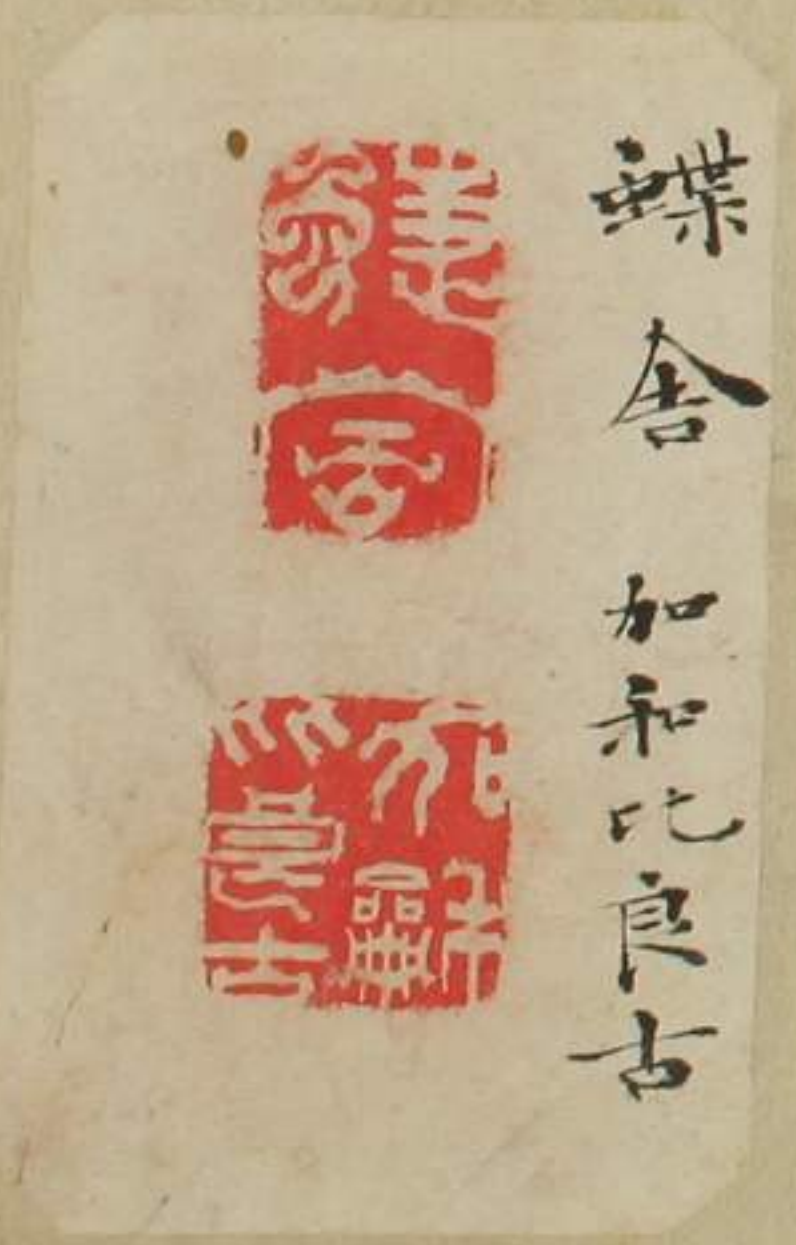 蝶舎 加和比良古
蝶舎
加龢比良古